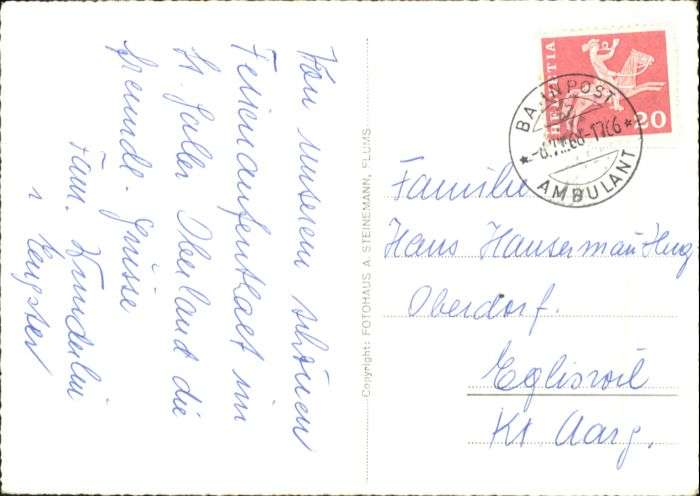 Von unserem schönen
Ferienaufenthalt im
St. Galler Oberland die
freundl. Grüsse
Fam. Wunderlin
Copyright: FOTOHAUS A. STEINEMANN, FLUMS
HELVETIA
20
BAHNPOST
AMBULANT
Familie
Hans Hausermann Hug
Oberdorf.
Egliswil
Kt Aarg.